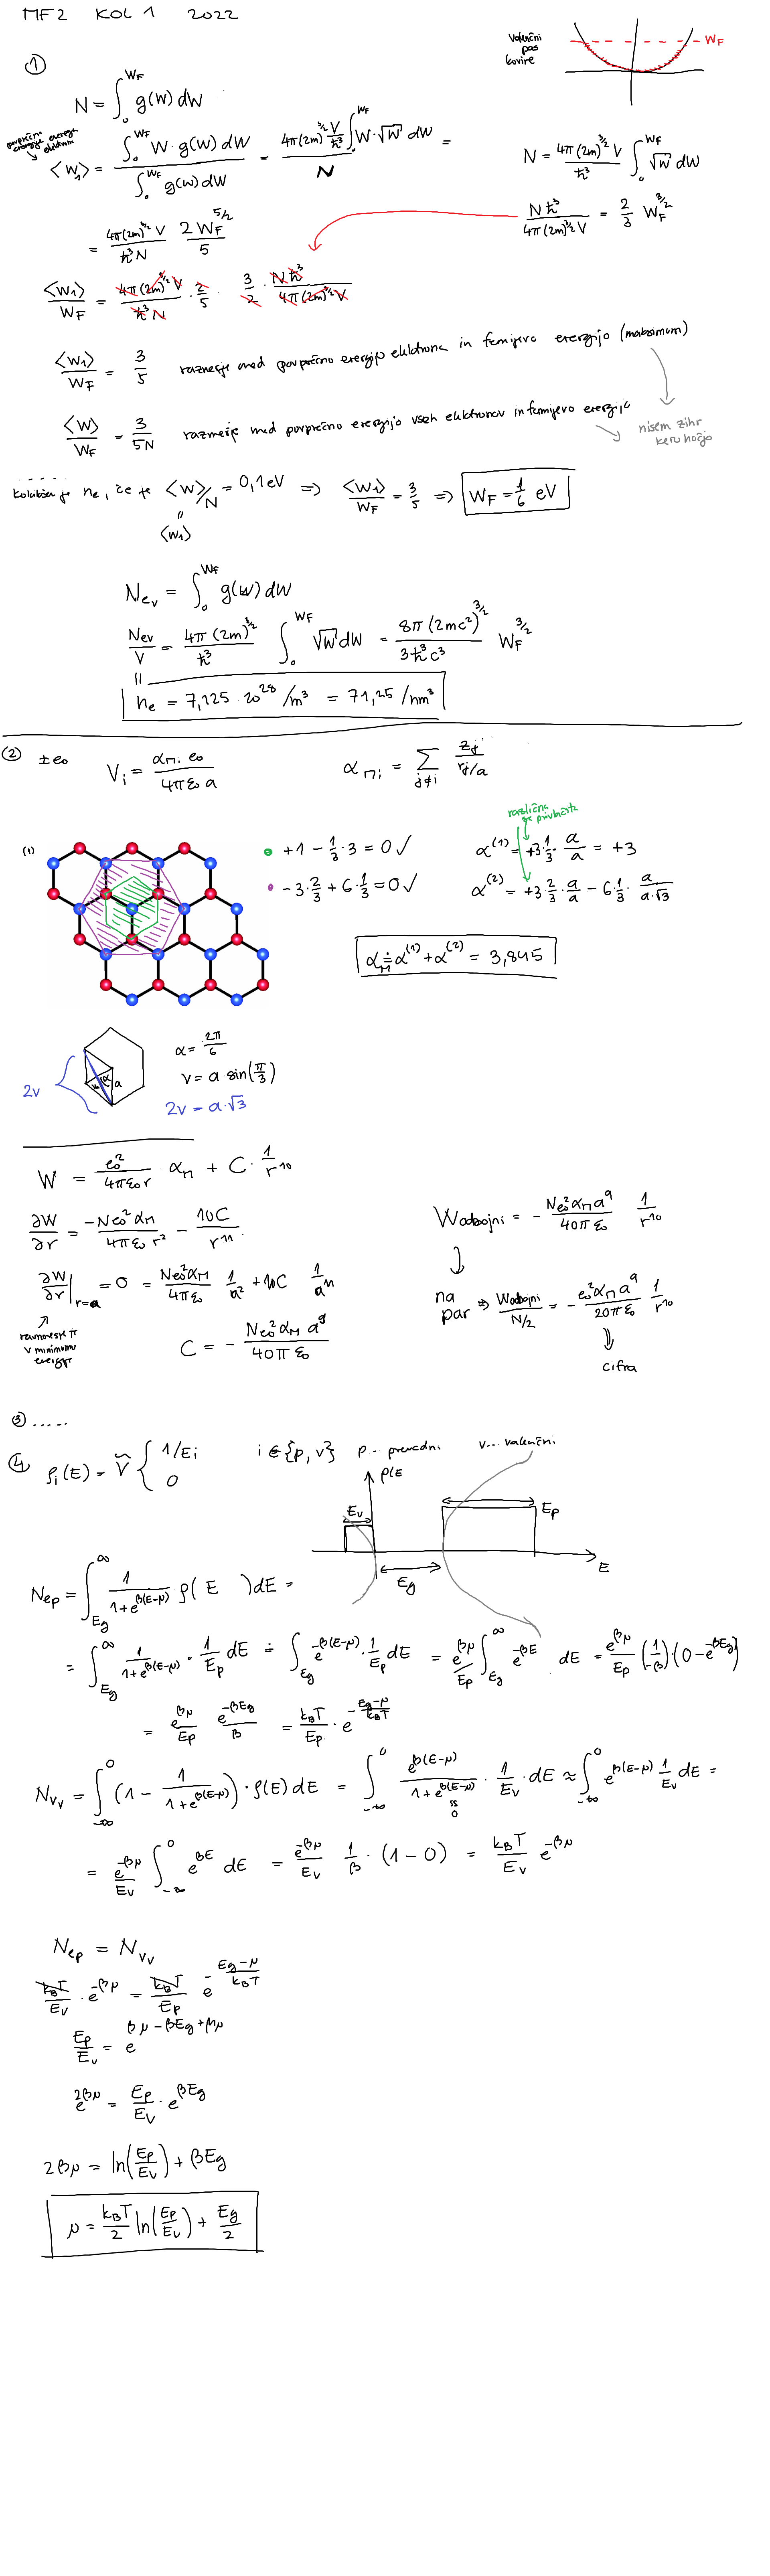 MF2 KOL 1 2022
valenčni
pas
kovine
W_F
①
N = ∫_0^{W_F} g(W) dW
⟨W_1⟩ = ∫_0^{W_F} W g(W) dW / ∫_0^{W_F} g(W) dW = 4π(2m)^{3/2} V/ħ^3 ∫_0^{W_F} W·√W dW / N =
N = 4π(2m)^{3/2} V / ħ^3 ∫_0^{W_F} √W dW
= 4π(2m)^{3/2} V / ħ^3 N · 2 W_F^{5/2} / 5
N ħ^3 / 4π(2m)^{3/2} V = 2/3 W_F^{3/2}
⟨W_1⟩/W_F = 4π(2m)^{3/2} V / ħ^3 N · 2/5 · 3/2 · N ħ^3 / 4π(2m)^{3/2} V
⟨W_1⟩/W_F = 3/5 razmerje med povprečno energijo elektrona in fermijevo energijo (maksimum)
⟨W⟩/W_F = 3/5N razmerje med povprečno energijo vseh elektronov in fermijevo energijo
nisem zihr
kero hočjo
kolikšen je n_e, če je ⟨W⟩/N = 0,1 eV ⇒ ⟨W_1⟩/W_F = 3/5 ⇒ W_F = 1/6 eV
=
⟨W_1⟩
N_ev = ∫_0^{W_F} g(W) dW
N_ev/V = 4π(2m)^{3/2} / ħ^3 ∫_0^{W_F} √W dW = 8π(2mc^2)^{3/2} / 3ħ^3c^3 W_F^{3/2}
=
n_e = 7,125 · 10^28 /m^3 = 71,25 /nm^3
② ±e_0 V_i = α_{Mi} e_0 / 4πε_0 a α_{Mi} = Σ_{j≠i} z_j / r_j/a
različno
se privlačita
(1)
+1 − 1/3 · 3 = 0 ✓ α^(1) = +3 · 1/3 · a/a = +3
−3 · 2/3 + 6 · 1/3 = 0 ✓ α^(2) = +3 · 2/3 · a/a − 6 · 1/3 · a/a·√3
α_M ≐ α^(1) + α^(2) = 3,845
α = 2π/6
v = a sin(π/3)
2v = a·√3
2v
v α a
W = e_0^2 / 4πε_0 r · α_M + C · 1/r^10
∂W/∂r = −N e_0^2 α_M / 4πε_0 r^2 − 10C / r^11
∂W/∂r |_{r=a} = 0 = N e_0^2 α_M / 4πε_0 1/a^2 + 10C 1/a^11
ravnovesje je
v minimumu
energije
C = − N e_0^2 α_M a^9 / 40πε_0
W_odbojni = − N e_0^2 α_M a^9 / 40πε_0 1/r^10
na
par ⇒ W_odbojni / N/2 = − e_0^2 α_M a^9 / 20πε_0 1/r^10
⇓
cifra
③ .....
④ ρ_i(E) = Ṽ { 1/E_i
0
i ∈ {p, v} p... prevodni v... valenčni
ρ(E
E_v
E_p
E_g
E
N_ep = ∫_{E_g}^∞ 1/1+e^{β(E−μ)} · ρ(E )dE =
= ∫_{E_g}^∞ 1/1+e^{β(E−μ)} · 1/E_p dE ≐ ∫_{E_g} e^{−β(E−μ)} · 1/E_p dE = e^{βμ}/E_p ∫_{E_g}^∞ e^{−βE} dE = e^{βμ}/E_p (1/−β)·(0−e^{−βE_g})
= e^{βμ}/E_p e^{−βE_g}/β = k_BT/E_p · e^{−(E_g−μ)/k_BT}
N_vv = ∫_{−∞}^0 (1 − 1/1+e^{β(E−μ)}) · ρ(E) dE = ∫_{−∞}^0 e^{β(E−μ)} / 1+e^{β(E−μ)} · 1/E_v · dE ≈ ∫_{−∞}^0 e^{β(E−μ)} 1/E_v dE =
≈
0
= e^{−βμ}/E_v ∫_{−∞}^0 e^{βE} dE = e^{−βμ}/E_v 1/β · (1−0) = k_BT/E_v e^{−βμ}
N_ep = N_vv
k_BT/E_v · e^{−βμ} = k_BT/E_p e^{−(E_g−μ)/k_BT}
E_p/E_v = e^{βμ−βE_g+βμ}
e^{2βμ} = E_p/E_v · e^{βE_g}
2βμ = ln(E_p/E_v) + βE_g
μ = k_BT/2 ln(E_p/E_v) + E_g/2